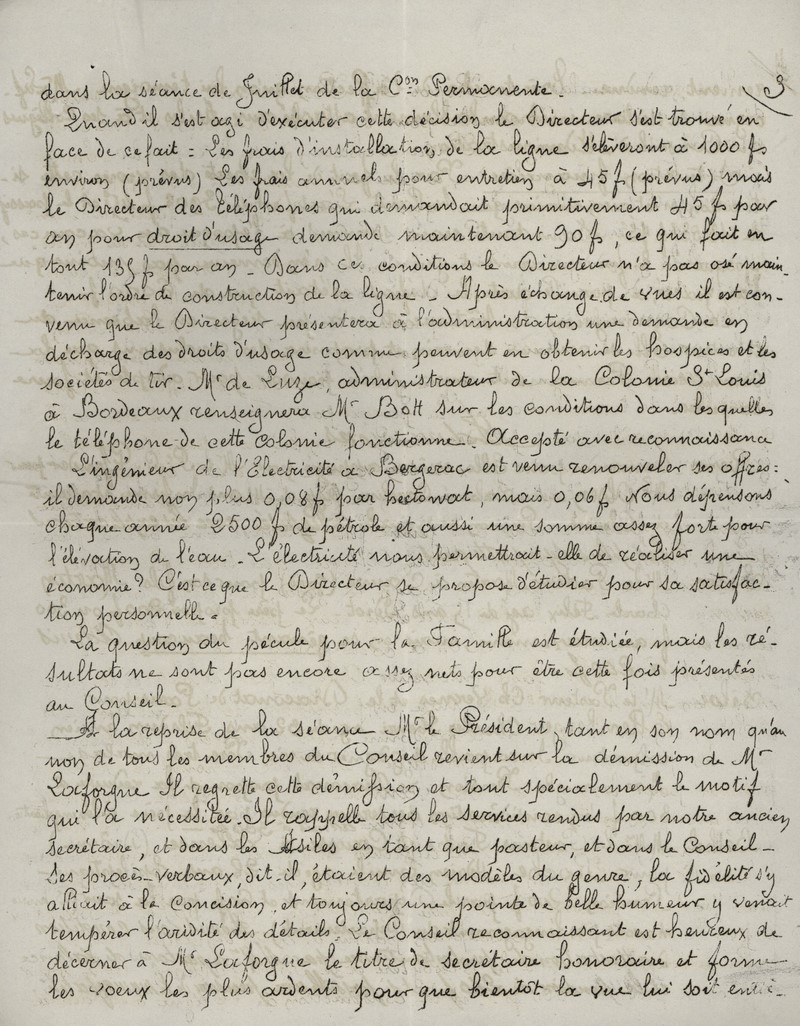 dans la séance de Juillet de la Con Permanente.
3
Quand il s'est agi d'exécuter cette décision le Directeur s'est trouvé en
face de ce fait : Les frais d'installation de la ligne s'élèveront à 1000 f,
environ (prévus) Les frais annuels pour entretien à 45 f (prévus) mais
le Directeur des téléphones qui demandait primitivement 45 f par
an pour droit d'usage demande maintenant 90 f, ce qui fait en
tout 135 f par an. Dans ce conditions le Directeur n'a pas osé main-
tenir l'ordre de construction de la ligne. Après échange de vues il est con-
venu que le Directeur présentera à l'administration une demande en
décharge des droits d'usage comme peuvent en obtenir les hospices et les
sociétés de tir. Mr de Luze, administrateur de la Colonie St Louis
à Bordeaux renseignera Mr Bott sur les conditions dans lesquelles
le téléphone de cette Colonie fonctionne. Accepté avec reconnaissance
L'ingénieur de l'Electricité à Bergerac est venu renouveler ses offres :
il demande non plus 0,08 f par hectowat, mais 0,06 f Nous dépensons
chaque année 2500 f de pétrole et aussi une somme assez forte pour
l'élévation de l'eau. L'électricité nous permettrait-elle de réaliser une
économie? C'est ce que le Directeur se propose d'étudier pour sa satisfac-
tion personnelle.
La question du pécule pour la Famille est étudiée, mais les ré-
sultats ne sont pas encore assez nets pour être cette fois présentés
au Conseil.
A la reprise de la séance Mr le Président, tant en son nom qu'au
nom de tous les membres du Conseil revient sur la démission de Mr
Laforgue Il regrette cette démission et tout spécialement le motif
qui l'a nécessitée. Il rappelle tous les services rendus par notre ancien
secrétaire, et dans les Asiles en tant que pasteur, et dans le Conseil -
Ses procès-verbaux, dit-il, étaient des modèles du genre, la fidélité s'y
alliait à la concision, et toujours une pointe de belle humeur y venait
tempérer l'aridité des détails. Le Conseil reconnaissant est heureux de
décerner à Mr Laforgue le titre de secrétaire honoraire et forme
les voeux les plus ardents pour que bientôt la vue lui soit enti-